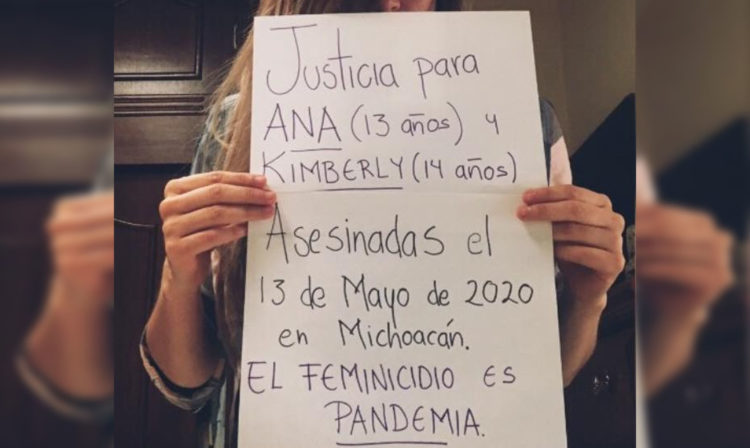 Justicia para
ANA (13 años) y
KIMBERLY (14 años)
Asesinadas el
13 de Mayo de 2020
en Michoacán.
EL FEMINICIDIO ES
PANDEMIA.